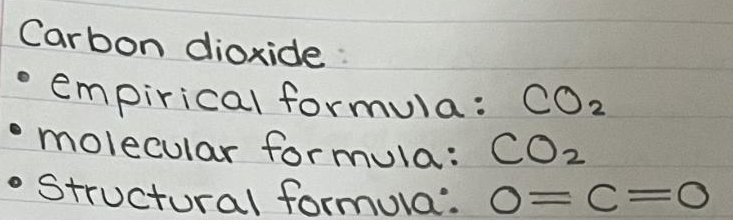 Carbon dioxide:
• empirical formula: CO₂
• molecular formula: CO₂
• Structural formula: O=C=O